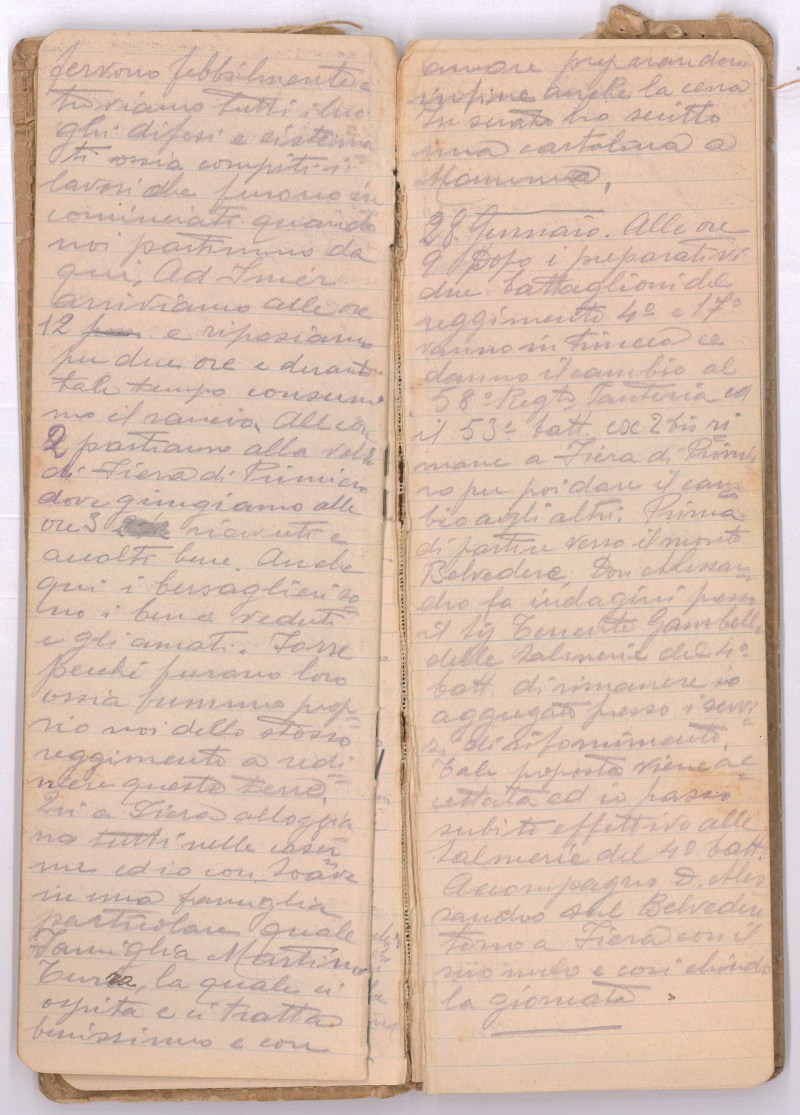 fervono febbrilmente e
troviamo tutti i luo
ghi difesi e sistema
ti ossia compiti i
lavori che furono in
cominciati quando
noi partimmo da
qui. Ad Imèr
arriviamo alle ore
12 e riposiamo
per due ore e durante
tale tempo consumia
mo il rancio. Alle ore
2 partiamo alla volta
di Fiera di Primiero
dove giungiamo alle
ore 3 ricevuti e
accolti bene. Anche
qui i bersaglieri so
no i bene veduti
e gli amati. Forse
perché furono loro
ossia fummo prop
rio noi dello stesso
reggimento a redi
mere queste terre.
Qui a Fiera alloggia
no tutti nelle caser
me ed io con Soave
in una famiglia
particolare quale
Famiglia Martino
Turra, la quale ci
ospita e ci tratta
benissimo e con
amore preparandoci
infine anche la cena
In serata ho scritto
una cartolina a
Mamma.
28. Gennaio. Alle ore
9 Dopo i preparativi
due battaglioni del
reggimento 4º e 17º
vanno in trincea e
danno il cambio al
58º Regto Fanteria ed
il 53º batt. ex 2 bis ri
mane a Fiera di Primie
ro per poi dare il cam
bio agli altri. Prima
di partire verso il monte
Belvedere, Don Alessan
dro fa indagini presso
il Sig Tenente Gambella
delle Salmerie del 4º
batt. di rimanere io
aggregato presso i servi
zi di rifornimento.
Tale proposta viene ac
cettata ed io passo
subito effettivo alle
Salmerie del 4º batt.
Accompagno D. Ales
sandro sul Belvedere
torno a Fiera con il
suo mulo e così chiudo
la giornata